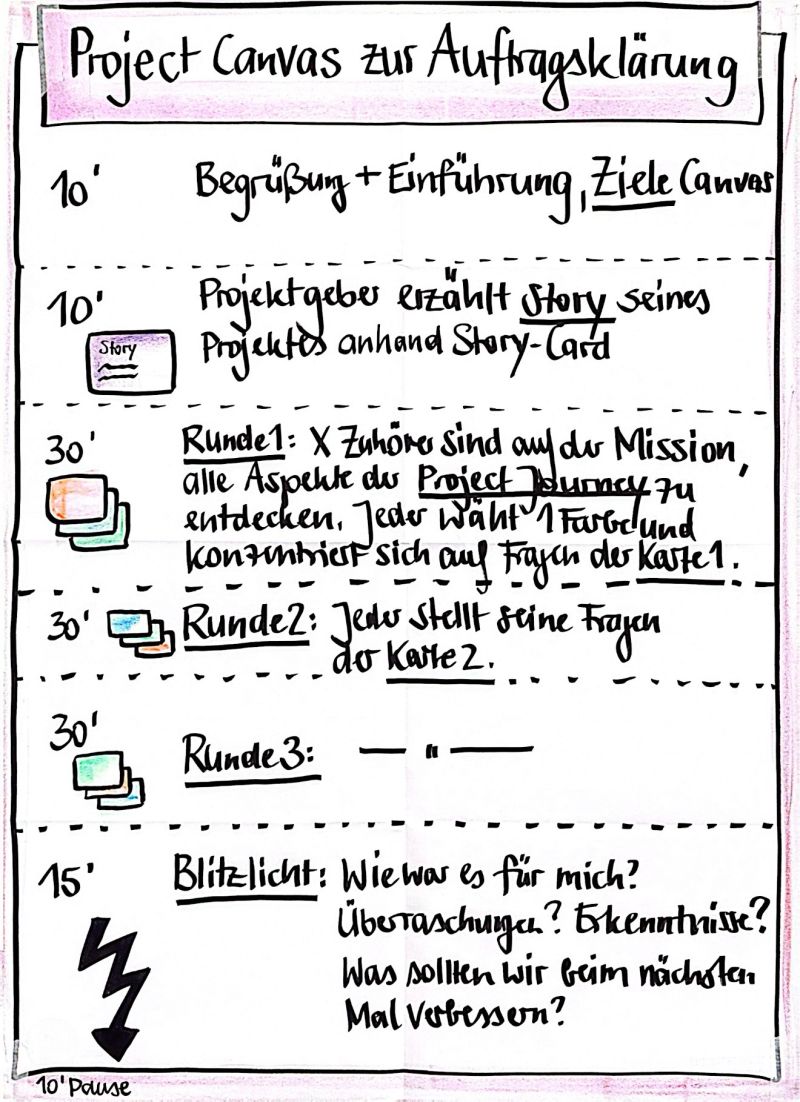 Project Canvas zur Auftragsklärung
10' Begrüßung + Einführung, Ziele Canvas
10' Projektgeber erzählt Story seines
Projektes anhand Story-Card
Story
30' Runde 1: X Zuhörer sind auf der Mission,
alle Aspekte der Project Journey zu
entdecken. Jeder wählt 1 Farbe und
konzentriert sich auf Fragen der Karte 1.
30' Runde 2: Jeder stellt seine Fragen
der Karte 2.
30' Runde 3: — " —
15' Blitzlicht: Wie war es für mich?
Überraschungen? Erkenntnisse?
Was sollten wir beim nächsten
Mal verbessern?
10' Pause